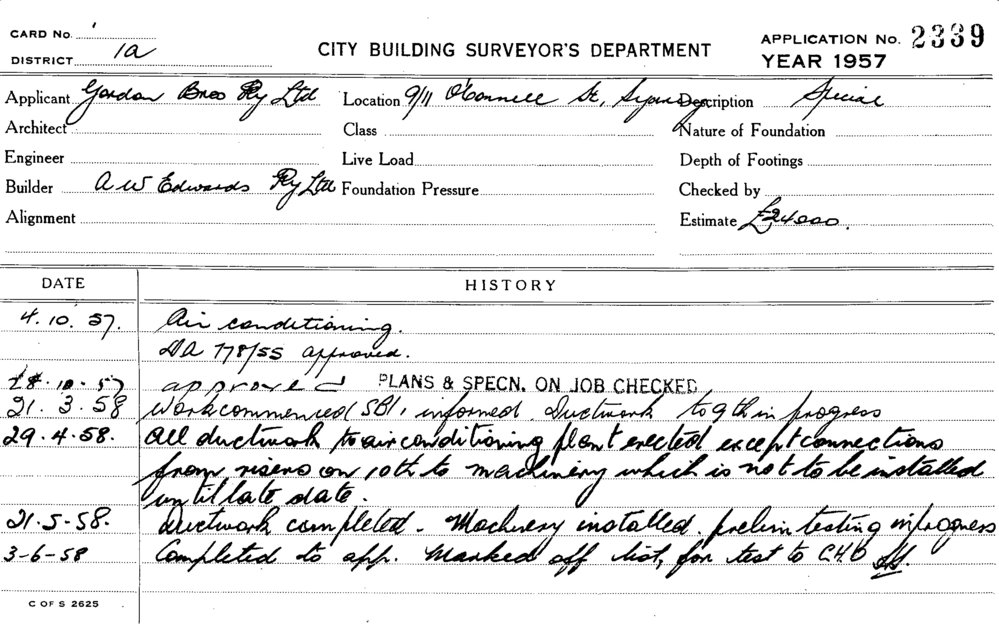 CARD No. 1
DISTRICT 1a
CITY BUILDING SURVEYOR'S DEPARTMENT
APPLICATION No. 2339
YEAR 1957
Applicant Gordon Bros Pty Ltd Location 9/11 O'Connell St, Sydney Description Special
Architect Class Nature of Foundation
Engineer Live Load Depth of Footings
Builder A W Edwards Pty Ltd Foundation Pressure Checked by
Alignment Estimate £24000.
DATE HISTORY
4.10.57. Air conditioning.
DA 778/55 approved.
18.10.57 approved PLANS & SPECN. ON JOB CHECKED
21.3.58 Work commenced SBI, informed Ductwork to 9th in progress
29.4.58. All ductwork to airconditioning plant erected except connections
from risers on 10th to machinery which is not to be installed
until late date.
21-5-58. Ductwork completed - Machinery installed. prelim testing in progress
3-6-58 Completed to app. Marked off list, for test to CHO
C OF S 2625